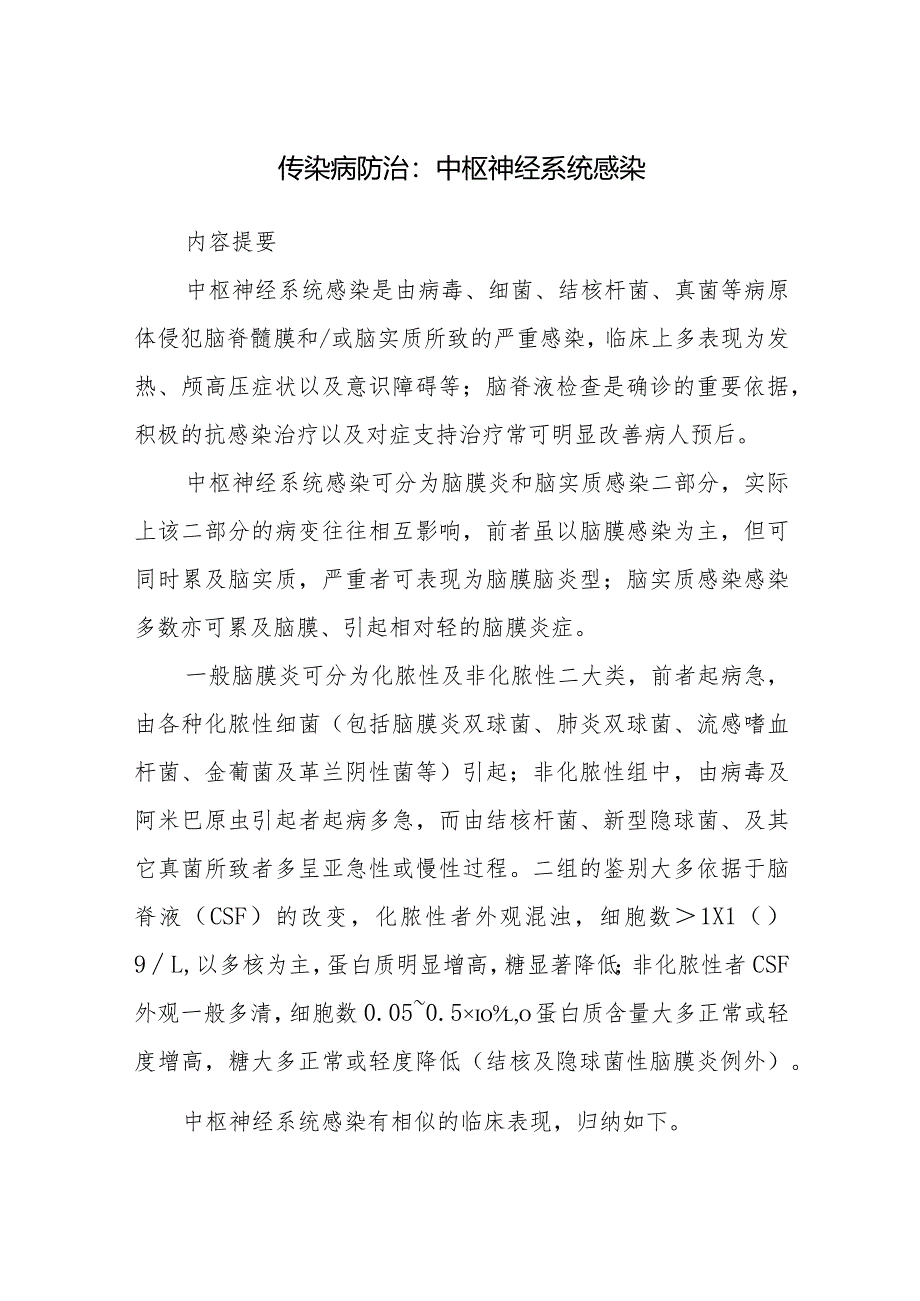 传染病防治：中枢神经系统感染
内容提要
中枢神经系统感染是由病毒、细菌、结核杆菌、真菌等病原
体侵犯脑脊髓膜和/或脑实质所致的严重感染，临床上多表现为发
热、颅高压症状以及意识障碍等；脑脊液检查是确诊的重要依据，
积极的抗感染治疗以及对症支持治疗常可明显改善病人预后。
中枢神经系统感染可分为脑膜炎和脑实质感染二部分，实际
上该二部分的病变往往相互影响，前者虽以脑膜感染为主，但可
同时累及脑实质，严重者可表现为脑膜脑炎型；脑实质感染感染
多数亦可累及脑膜、引起相对轻的脑膜炎症。
一般脑膜炎可分为化脓性及非化脓性二大类，前者起病急，
由各种化脓性细菌（包括脑膜炎双球菌、肺炎双球菌、流感嗜血
杆菌、金葡菌及革兰阴性菌等）引起；非化脓性组中，由病毒及
阿米巴原虫引起者起病多急，而由结核杆菌、新型隐球菌、及其
它真菌所致者多呈亚急性或慢性过程。二组的鉴别大多依据于脑
脊液（CSF）的改变，化脓性者外观混浊，细胞数＞1X1（）
9／L,以多核为主，蛋白质明显增高，糖显著降低；非化脓性者CSF
外观一般多清，细胞数0.05~0.5×ιo%,o蛋白质含量大多正常或轻
度增高，糖大多正常或轻度降低（结核及隐球菌性脑膜炎例外）。
中枢神经系统感染有相似的临床表现，归纳如下。